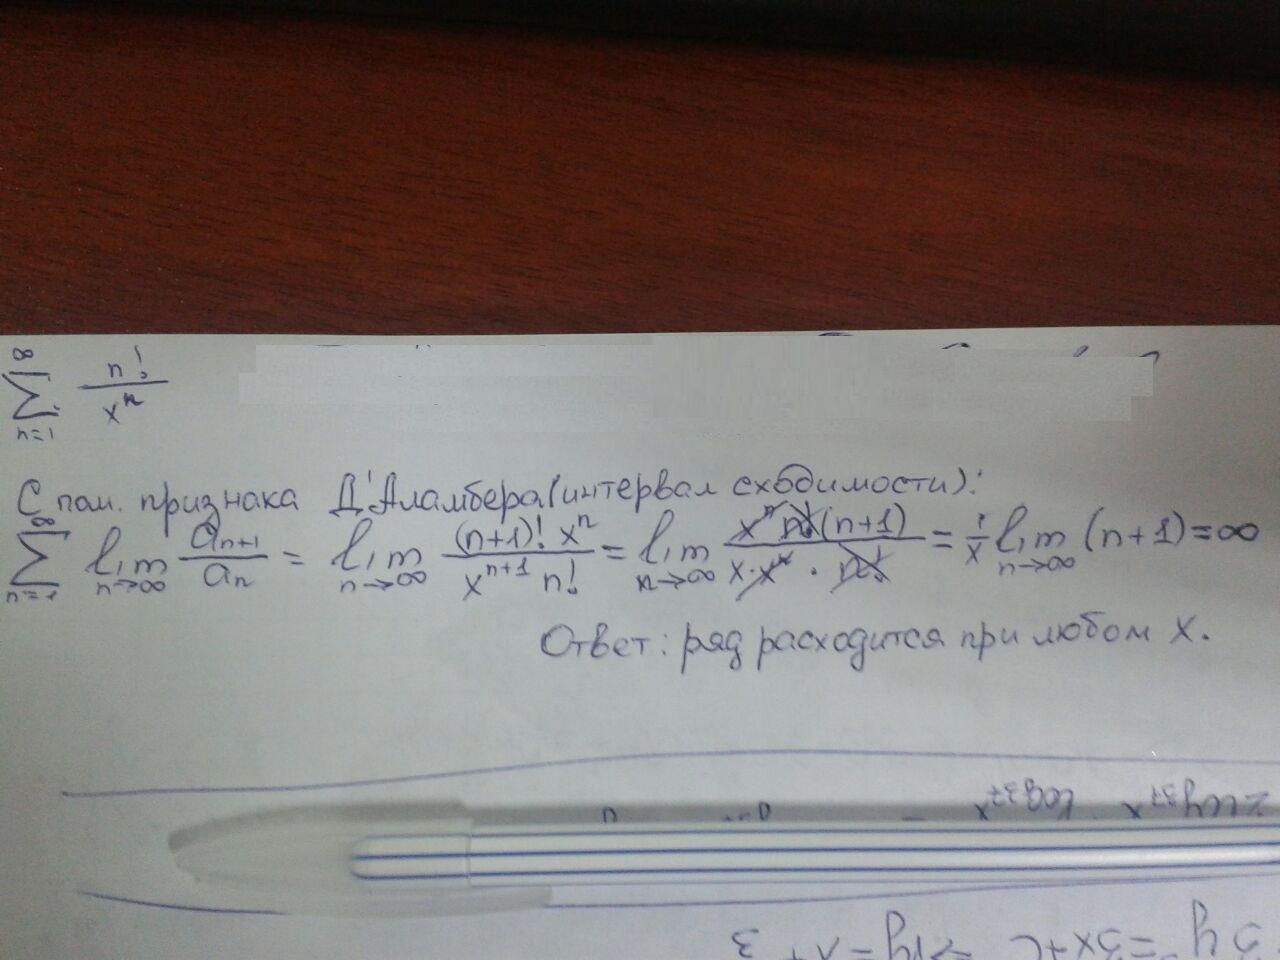 ∞
∑ n! / xⁿ
n=1
С пом. признака Д'Аламбера(интервал сходимости):
∞
∑ lim aₙ₊₁ / aₙ = lim (n+1)! xⁿ / xⁿ⁺¹ n! = lim xⁿ n! (n+1) / x·xⁿ · n! = 1/x lim (n+1) = ∞
n=1 n→∞ n→∞ n→∞ n→∞
Ответ: ряд расходится при любом x.